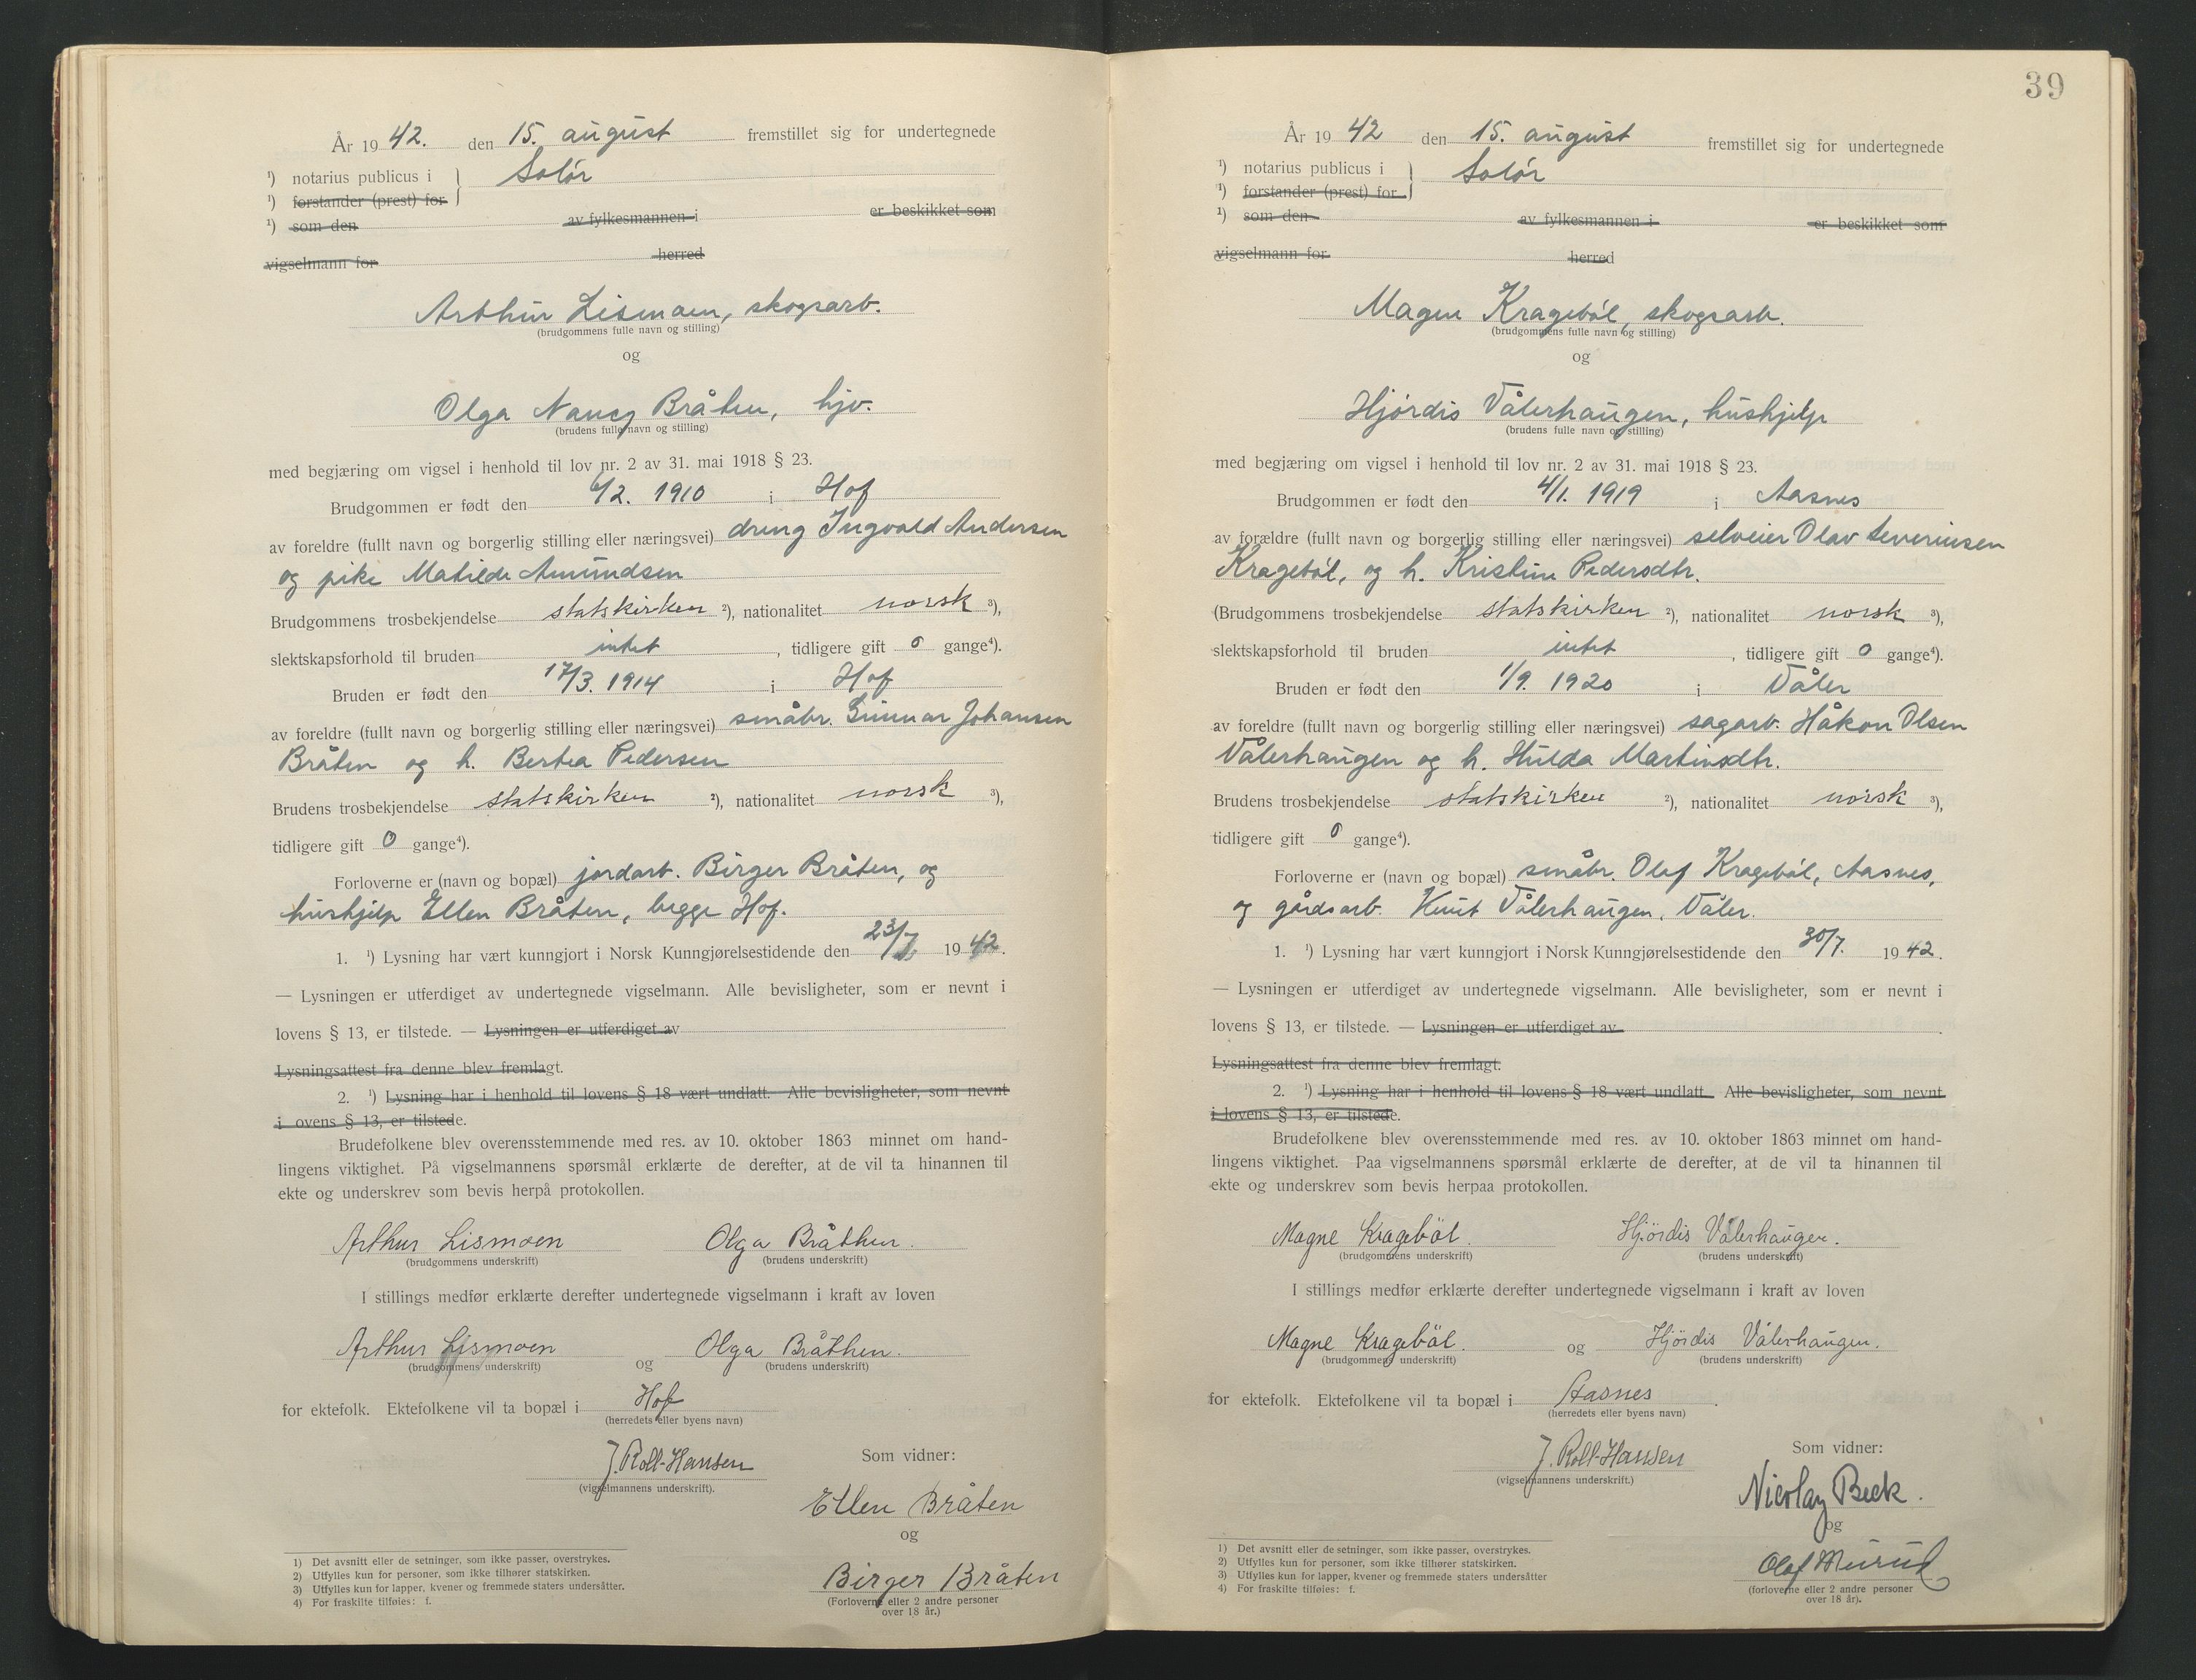 År 19 42. den 15. august fremstillet sig for undertegnede
¹) notarius publicus i } Solør
¹) forstander (prest) for
¹) som den av fylkesmannen i er beskikket som
vigselmann for herred
Arthur Lismoen, skogsarb.
(brudgommens fulle navn og stilling)
og
Olga Nancy Bråten, hjv.
(brudens fulle navn og stilling)
med begjæring om vigsel i henhold til lov nr. 2 av 31. mai 1918 § 23.
Brudgommen er født den 6/2. 1910 i Hof
av foreldre (fullt navn og borgerlig stilling eller næringsvei) dreng Ingvald Andersen
og pike Matilde Amundsen
Brudgommens trosbekjendelse statskirken ²), nationalitet norsk ³),
slektskapsforhold til bruden intet, tidligere gift 0 gange⁴).
Bruden er født den 17/3. 1914 i Hof
av foreldre (fullt navn og borgerlig stilling eller næringsvei) småbr. Gunnar Johansen
Bråten og h. Bertea Pedersen
Brudens trosbekjendelse statskirken ²), nationalitet norsk ³),
tidligere gift 0 gange⁴).
Forloverne er (navn og bopæl) jordarb. Birger Bråten, og
hushjelp Ellen Bråten, begge Hof.
1. ¹) Lysning har vært kunngjort i Norsk Kunngjørelsestidende den 23/7 19 42.
— Lysningen er utferdiget av undertegnede vigselmann. Alle bevisligheter, som er nevnt i
lovens § 13, er tilstede. — Lysningen er utferdiget av
Lysningsattest fra denne blev fremlagt.
2. ¹) Lysning har i henhold til lovens § 18 vært undlatt. Alle bevisligheter, som nevnt
i ovens § 13, er tilstede.
Brudefolkene blev overensstemmende med res. av 10. oktober 1863 minnet om hand-
lingens viktighet. På vigselmannens spørsmål erklærte de derefter, at de vil ta hinannen til
ekte og underskrev som bevis herpå protokollen.
Arthur Lismoen Olga Bråthen.
(brudgommens underskrift) (brudens underskrift)
I stillings medfør erklærte derefter undertegnede vigselmann i kraft av loven
Arthur Lismoen og Olga Bråthen.
(brudgommens underskrift) (brudens underskrift)
for ektefolk. Ektefolkene vil ta bopæl i Hof
(herredets eller byens navn)
J. Roll-Hansen Som vidner:
(vigselmannens underskrift).
Ellen Bråten
og
Birger Bråten
(Forloverne eller 2 andre personer
over 18 år.)
1) Det avsnitt eller de setninger, som ikke passer, overstrykes.
2) Utfylles kun for personer, som ikke tilhører statskirken.
3) Utfylles kun for lapper, kvener og fremmede staters undersåtter.
4) For fraskilte tilføies: f.
39
År 19 42 den 15. august fremstillet sig for undertegnede
¹) notarius publicus i } Solør
¹) forstander (prest) for
¹) som den av fylkesmannen i er beskikket som
vigselmann for herred
Magne Kragebøl, skogsarb.
(brudgommens fulle navn og stilling)
og
Hjørdis Vålerhaugen, hushjelp
(brudens fulle navn og stilling)
med begjæring om vigsel i henhold til lov nr. 2 av 31. mai 1918 § 23.
Brudgommen er født den 4/1. 1919 i Aasnes
av forældre (fullt navn og borgerlig stilling eller næringsvei) selveier Olav Severinsen
Kragebøl, og h. Kristine Pedersdtr.
(Brudgommens trosbekjendelse statskirken ²), nationalitet norsk ³),
slektskapsforhold til bruden intet, tidligere gift 0 gange⁴).
Bruden er født den 1/9. 1920 i Våler
av foreldre (fullt navn og borgerlig stilling eller næringsvei) sagarb. Håkon Olsen
Vålerhaugen og h. Hulda Martinsdtr.
Brudens trosbekjendelse statskirken ²), nationalitet norsk ³),
tidligere gift 0 gange⁴).
Forloverne er (navn og bopæl) småbr. Olaf Kragebøl, Aasnes,
og gårdsarb. Knut Vålerhaugen, Våler.
1. ¹) Lysning har vært kunngjort i Norsk Kunngjørelsestidende den 30/7. 19 42.
— Lysningen er utferdiget av undertegnede vigselmann. Alle bevisligheter, som er nevnt i
lovens § 13, er tilstede. — Lysningen er utferdiget av .
Lysningsattest fra denne blev fremlagt.
2. ¹) Lysning har i henhold til lovens § 18 vært undlatt. Alle bevisligheter, som nevnt
i lovens § 13, er tilstede.
Brudefolkene blev overensstemmende med res. av 10. oktober 1863 minnet om hand-
lingens viktighet. Paa vigselmannens spørsmål erklærte de derefter, at de vil ta hinannen til
ekte og underskrev som bevis herpaa protokollen.
Magne Kragebøl. Hjördis Vålerhaugen.
(brudgommens underskrift) (brudens underskrift)
I stillings medfør erklærte derefter undertegnede vigselmann i kraft av loven
Magne Kragebøl. og Hjördis Vålerhaugen.
(brudgommens underskrift) (brudens underskrift)
for ektefolk. Ektefolkene vil ta bopæl i Aasnes.
(herredets eller byens navn)
J. Roll-Hansen Som vidner:
(vigselmannens underskrift.)
Nicolay Beck.
og
Olaf Murud
(forloverne eller 2 andre personer
over 18 år).
1) Det avsnitt eller de setninger, som ikke passer, overstrykes.
2) Utfylles kun for personer, som ikke tilhører statskirken.
3) Utfylles kun for lapper, kvener og fremmede staters undersåtter
4) For fraskilte tilføies: f.